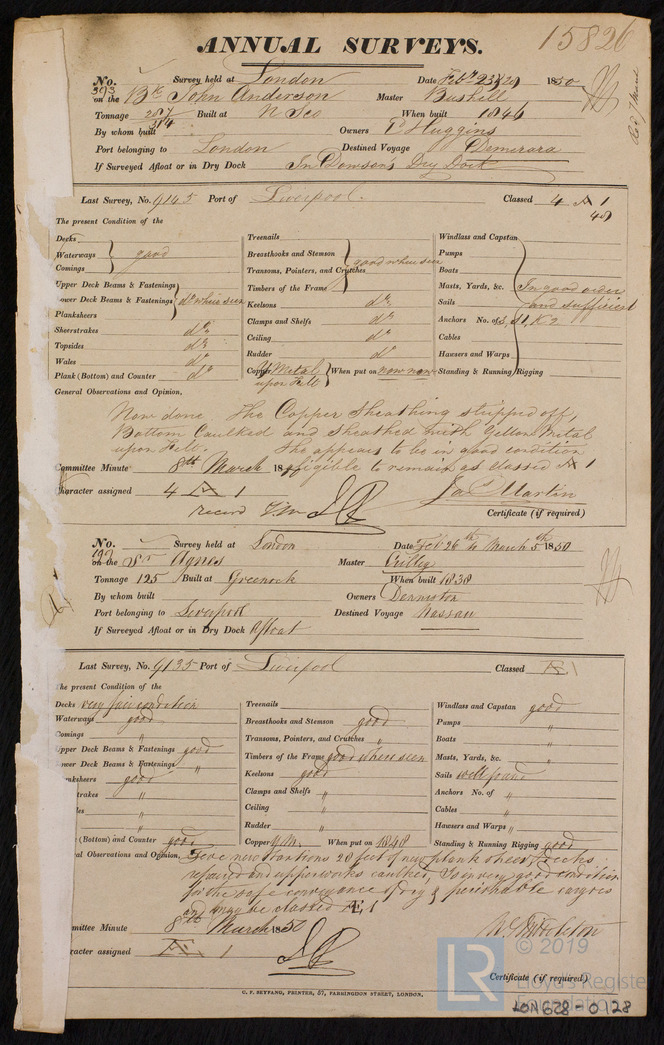 15826
ANNUAL SURVEYS.
No. 393 Survey held at London Date Feby 23 & 28 1850
on the Bk John Anderson Master Bushell
Tonnage 287/314 Built at N Sco When built 1846
By whom built Owners D Huggins
Port belonging to London Destined Voyage Demerara
If Surveyed Afloat or in Dry Dock In Dowson's Dry Dock
Last Survey, No. 9145 Port of Liverpool. Classed 4 A 1
The present Condition of the
Decks
Waterways good
Comings
Upper Deck Beams & Fastenings
Lower Deck Beams & Fastenings do where seen
Planksheers
Sheerstrakes do
Topsides do
Wales do
Plank (Bottom) and Counter do
Treenails
Breasthooks and Stemson
Transoms, Pointers, and Crutches good where seen
Timbers of the Frame
Keelsons do
Clamps and Shelfs do
Ceiling do
Rudder do
Copper Y Metal upon Felt When put on now new
Windlass and Capstan
Pumps
Boats
Masts, Yards, &c. In good order
Sails and sufficient
Anchors No. of
Cables
Hawsers and Warps
Standing & Running Rigging
General Observations and Opinion,
Now done The Copper Sheathing stripped off,
Bottom Caulked and sheathed with Yellow Metal
upon Felt. She appears to be in good condition
Committee Minute 8th March 18 eligible to remain as classed A 1
Character assigned 4 A 1 Jas Martin
record Certificate (if required)
No. 197 Survey held at London Date Feb 26th to March 5th 1850
on the Sr Agnes Master Crilley
Tonnage 125 Built at Greenock When built 1838
By whom built Owners Denniston
Port belonging to Liverpool Destined Voyage Nassau
If Surveyed Afloat or in Dry Dock Afloat
Last Survey, No. 9135 Port of Liverpool Classed Æ 1
The present Condition of the
Decks very fair condition
Waterways good
Comings "
Upper Deck Beams & Fastenings good
Lower Deck Beams & Fastenings "
Planksheers good
strakes "
"
"
(Bottom) and Counter good
Treenails
Breasthooks and Stemson good
Transoms, Pointers, and Crutches "
Timbers of the Frame good where seen
Keelsons good
Clamps and Shelfs "
Ceiling "
Rudder "
Copper Y.M. When put on 1848
Windlass and Capstan good
Pumps "
Boats "
Masts, Yards, &c. "
Sails well found
Anchors No. of "
Cables "
Hawsers and Warps "
Standing & Running Rigging good
al Observations and Opinion, Five new stantions 20 feet of new plank sheer, Decks
repaired and upperworks caulked, Is in very good condition
for the safe conveyance of dry & perishable cargoes
and may be classed Æ 1
mmittee Minute 8th March 1850
racter assigned Æ 1 W Middleton
Certificate (if required)
C. F. SEYFANG, PRINTER, 57, FARRINGDON STREET, LONDON.
LR © 2019
Lloyd's Register
Foundation
LON628-0128